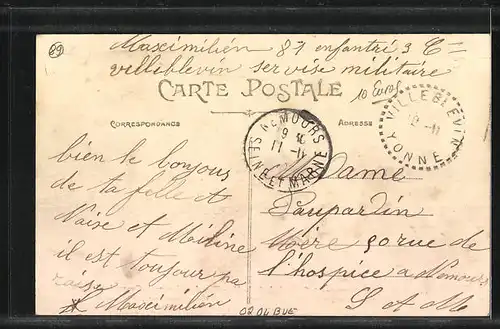 89
Maximilien 87 enfantri 3 C=
villeblevin servise militaire
CARTE POSTALE
10 Euros
CORRESPONDANCE
ADRESSE
NEMOURS
11 - 11
SEINE ET MARNE
VILLEBLEVIN
YONNE
bien le bonjour
de ta fille et
et
il est toujour
Maximilien
Madame
Paupardin
Mère 50 rue de
l'hospice a Nemours
S et M